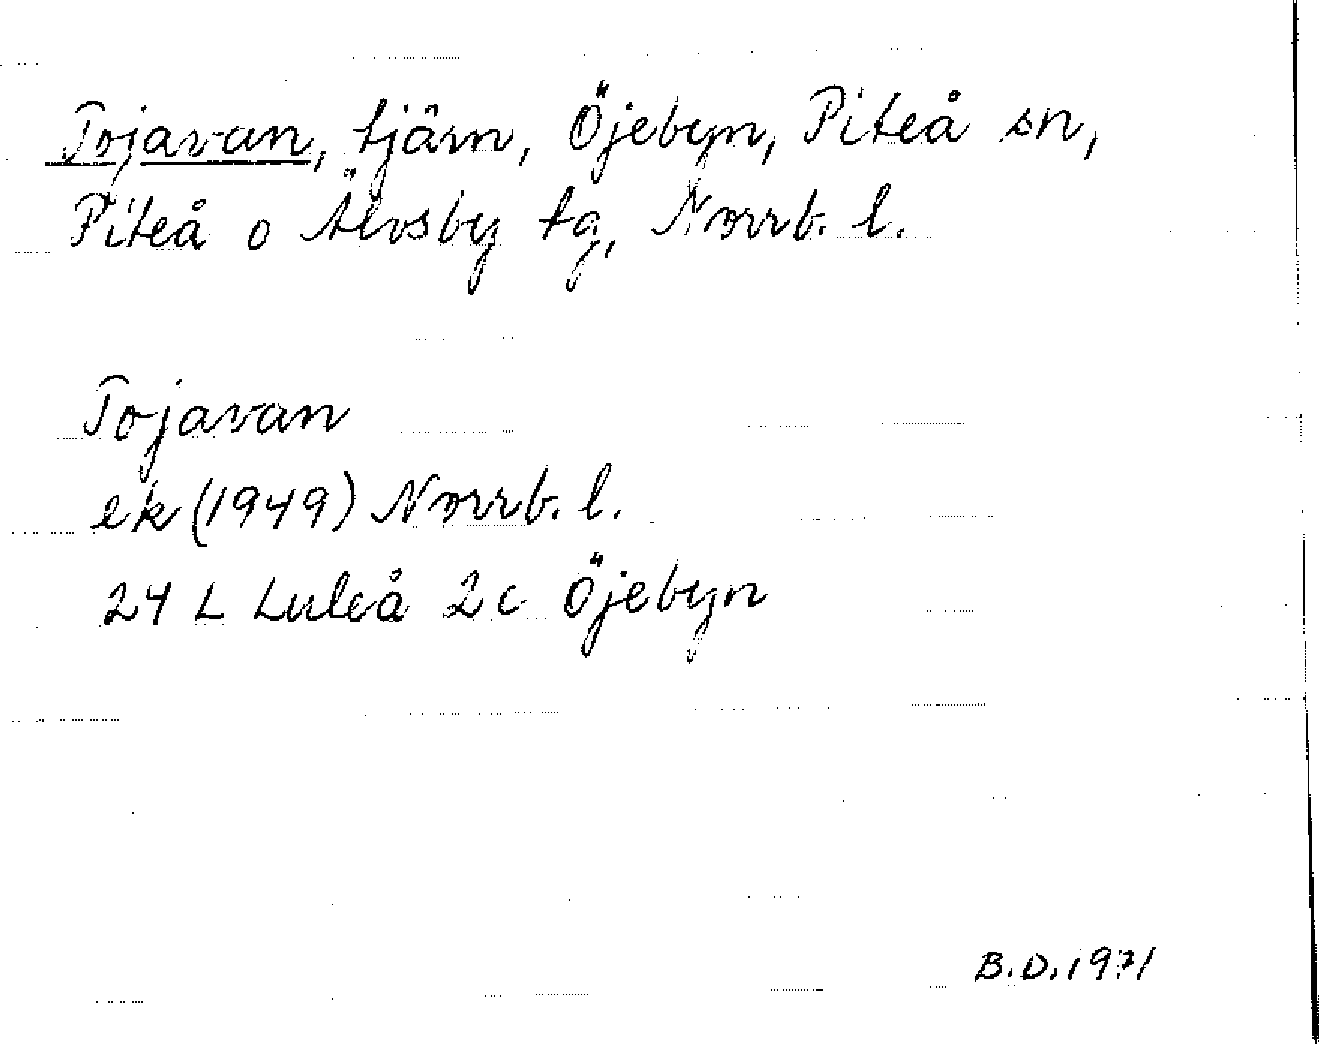 Tojavan, tjärn, Öjebyn, Piteå sn,
Piteå o Älvsby tg, Norrb. l.
Tojavan
ek (1949) Norrb. l.
24 L Luleå 2c Öjebyn
B.D. 1971